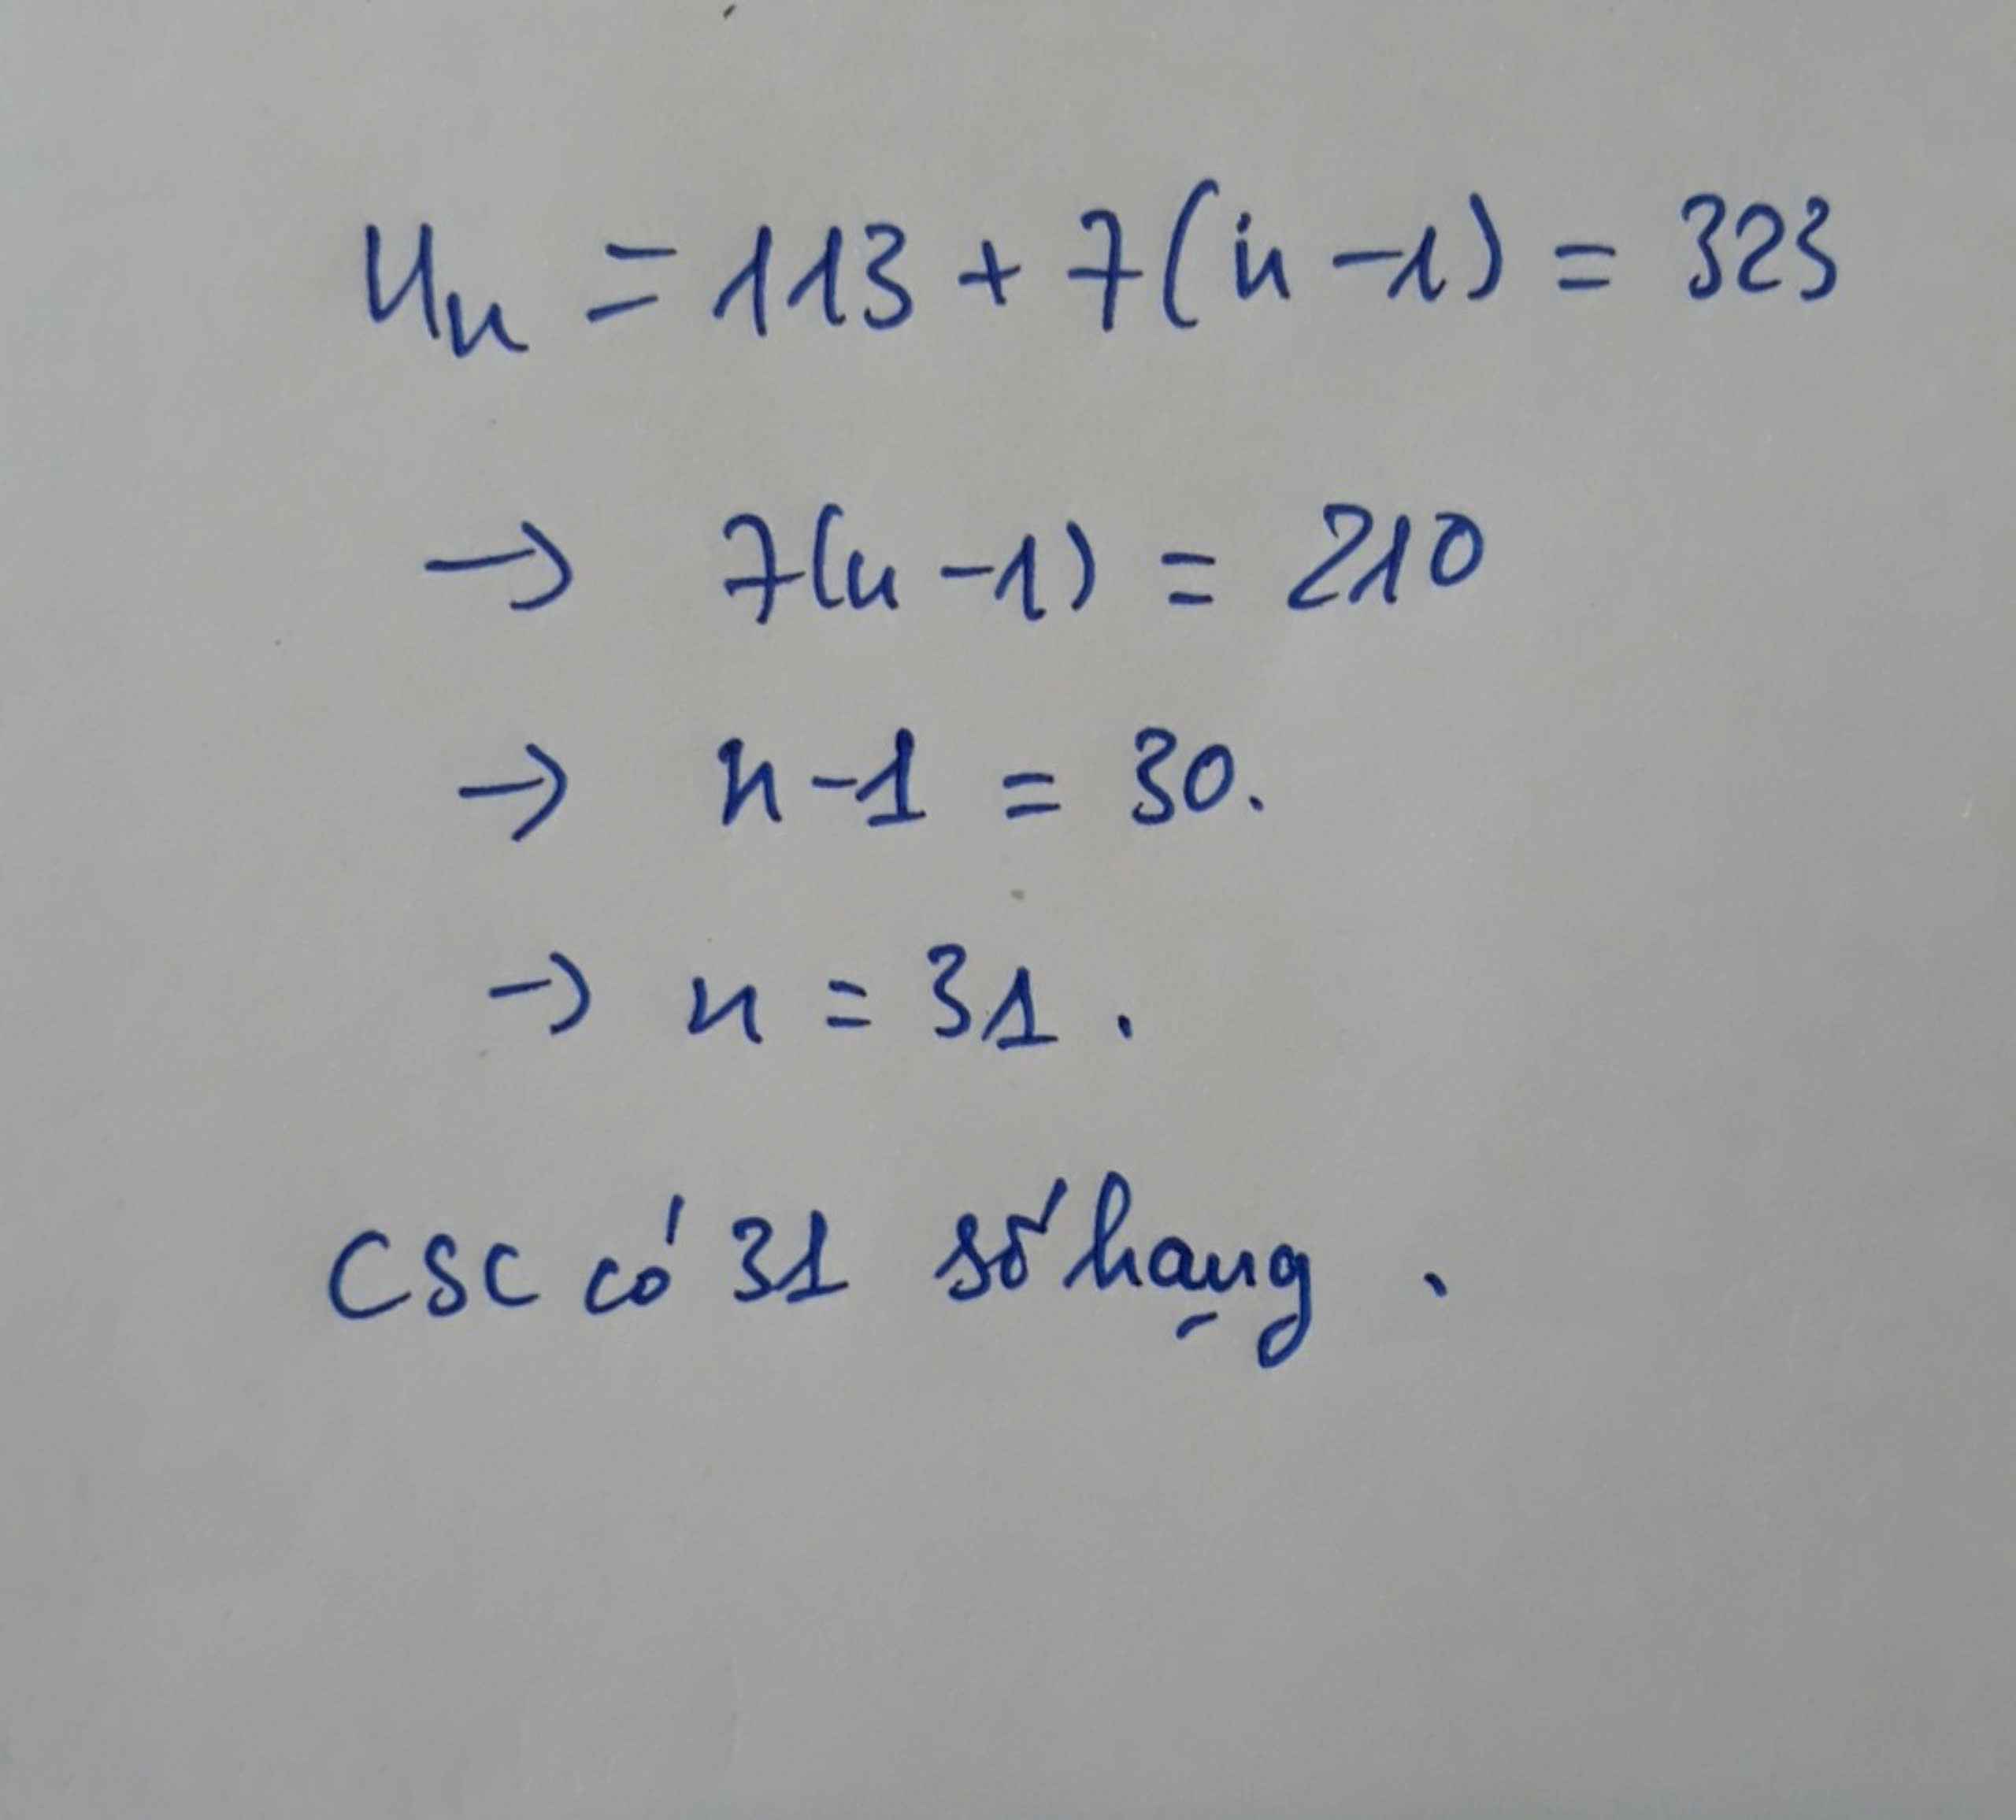 Un = 113 + 7(n-1) = 323
→ 7(n-1) = 210
→ n-1 = 30.
→ n = 31.
CSC có 31 số hạng.